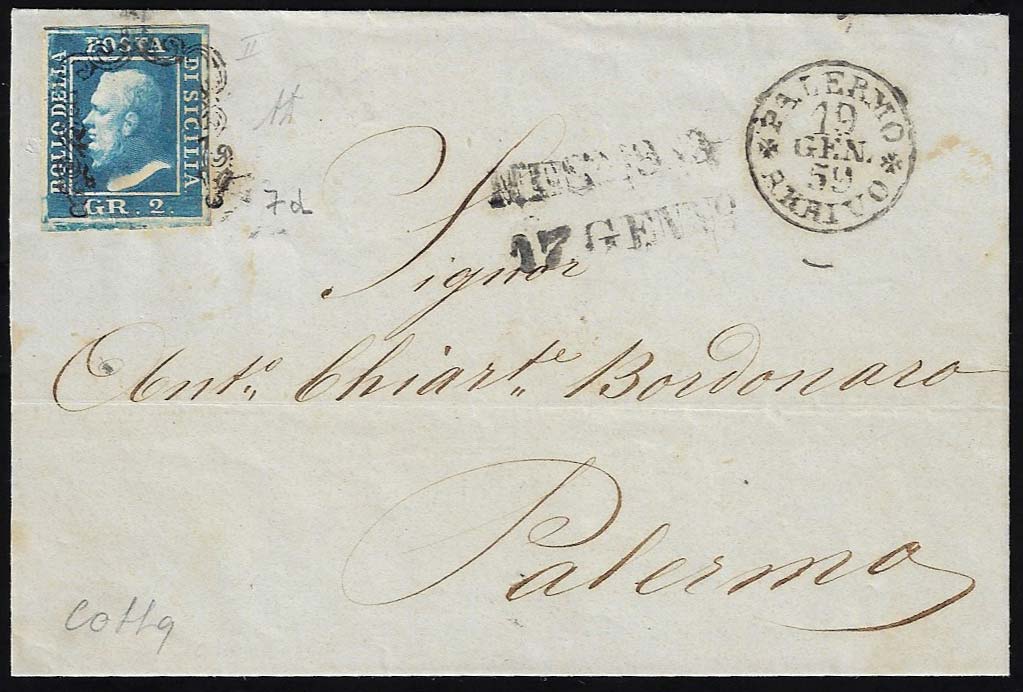 POSTA
BOLLO DELLA
DI SICILIA
GR. 2.
II
7d
17 GENN
PALERMO
19
GEN.
59
ARRIVO
Signor
Ant.º Chiar.te Bordonaro
Palermo